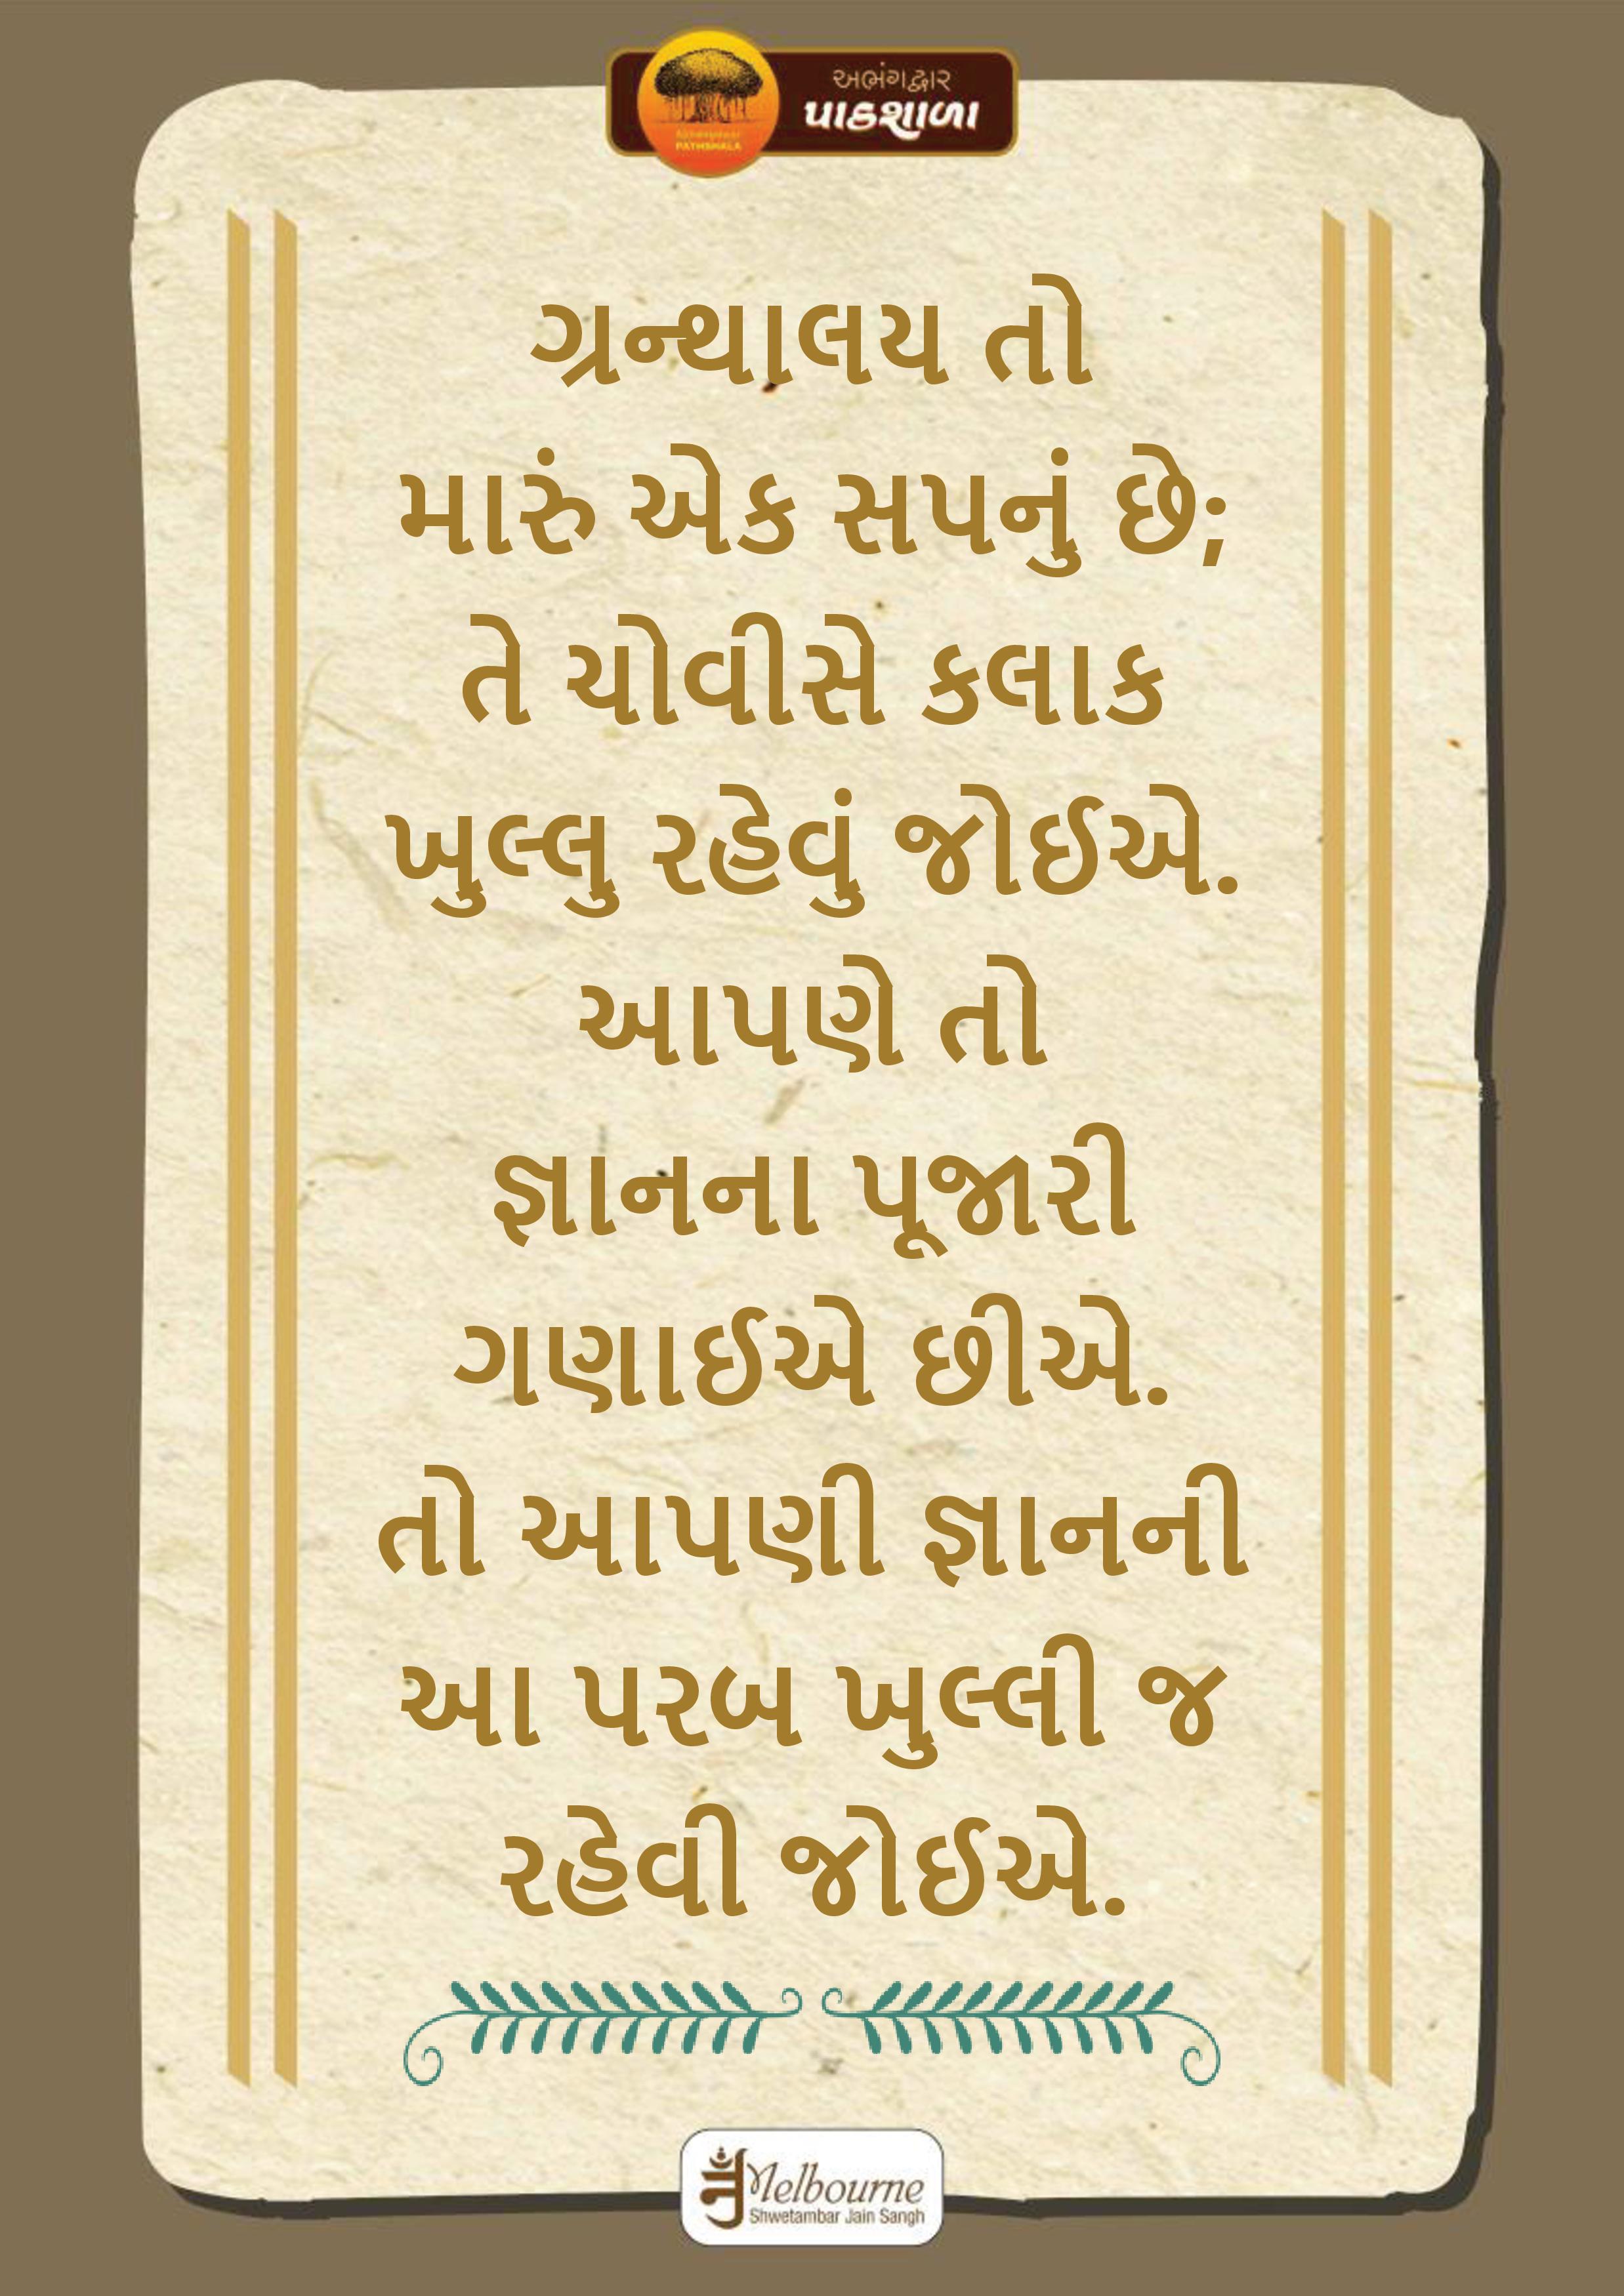 અભંગદ્વાર
પાઠશાળા
PATHSHALA
ગ્રન્થાલય તો
મારું એક સપનું છે;
તે ચોવીસે કલાક
ખુલ્લુ રહેવું જોઈએ.
આપણે તો
જ્ઞાનના પૂજારી
ગણાઈએ છીએ.
તો આપણી જ્ઞાનની
આ પરબ ખુલ્લી જ
રહેવી જોઈએ.
Melbourne
Shwetambar Jain Sangh